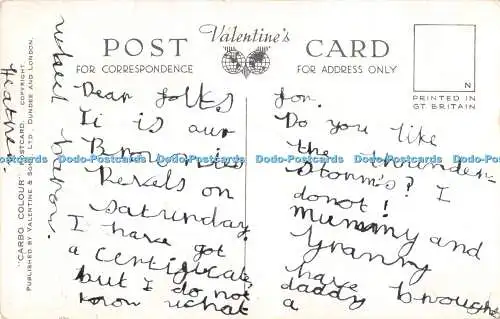 POST Valentine's CARD
FOR CORRESPONDENCE FOR ADDRESS ONLY
N
PRINTED IN
GT BRITAIN
"CARBO COLOUR" POSTCARD. COPYRIGHT.
PUBLISHED BY VALENTINE & SONS, LTD., DUNDEE AND LONDON.
Dear folks
It is our
Brownies
Revels on
saturday
I have got
a certificate
but I do not
know what
for.
Do you like
the thunder
storm's? I
donot!
mummy and
granny
have brought
daddy a
wheel barrow.
Heather.
Dodo-Postcards Dodo-Postcards Dodo-Postcards Dodo-Postcards Dodo-Postcards